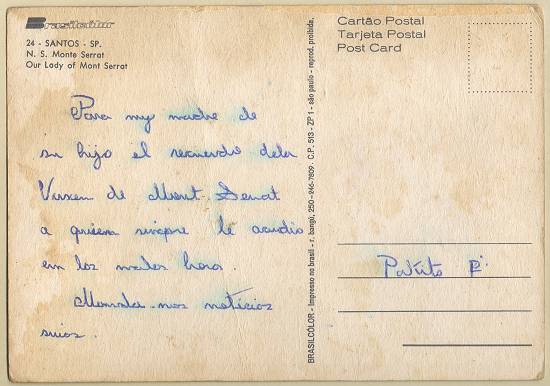 Brasilcolor
24 - SANTOS - SP.
N. S. Monte Serrat
Our Lady of Mont Serrat
Para my madre de
su hijo el recuerdo dela
Virxen de Mont. Serat
a quien sienpre le acudio
en los malos
Manda-nos noticias
suios.
BRASILCÓLOR - Impresso no brasil - r. bangú, 250 - 246-7809. C.P. 513 - ZP 1 - são paulo - reprod. proibida.
Cartão Postal
Tarjeta Postal
Post Card